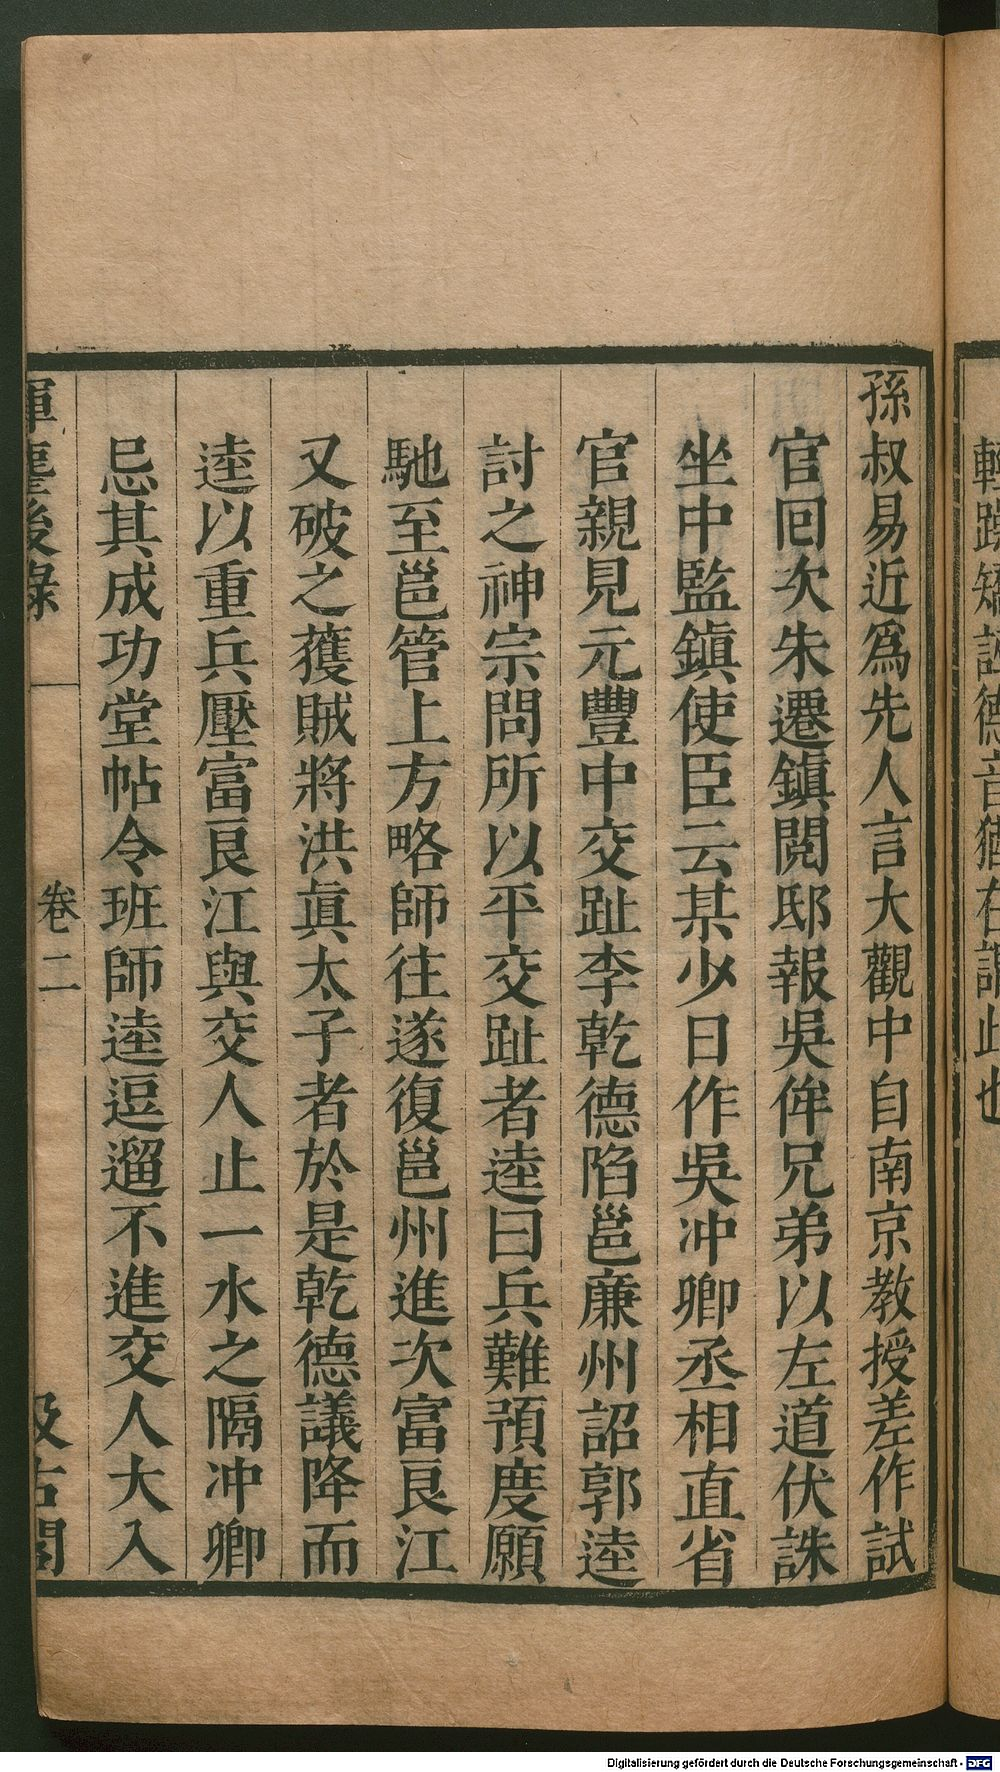 輕躁矯誣德音猶在謂此也
孫叔易近爲先人言大觀中自南京教授差作試
官囘次朱遷鎮閱邸報吳侔兄弟以左道伏誅
坐中監鎮使臣云某少日作吳冲卿丞相直省
官親見元豐中交趾李乾德陷邕廉州詔郭逵
討之神宗問所以平交趾者逵曰兵難預度願
馳至邕管上方略師往遂復邕州進次富良江
又破之獲賊將洪眞太子者於是乾德議降而
逵以重兵壓富良江與交人止一水之隔冲卿
忌其成功堂帖令班師逵逗遛不進交人大入
揮麈後錄 卷二 汲古閣
Digitalisierung gefördert durch die Deutsche Forschungsgemeinschaft - DFG